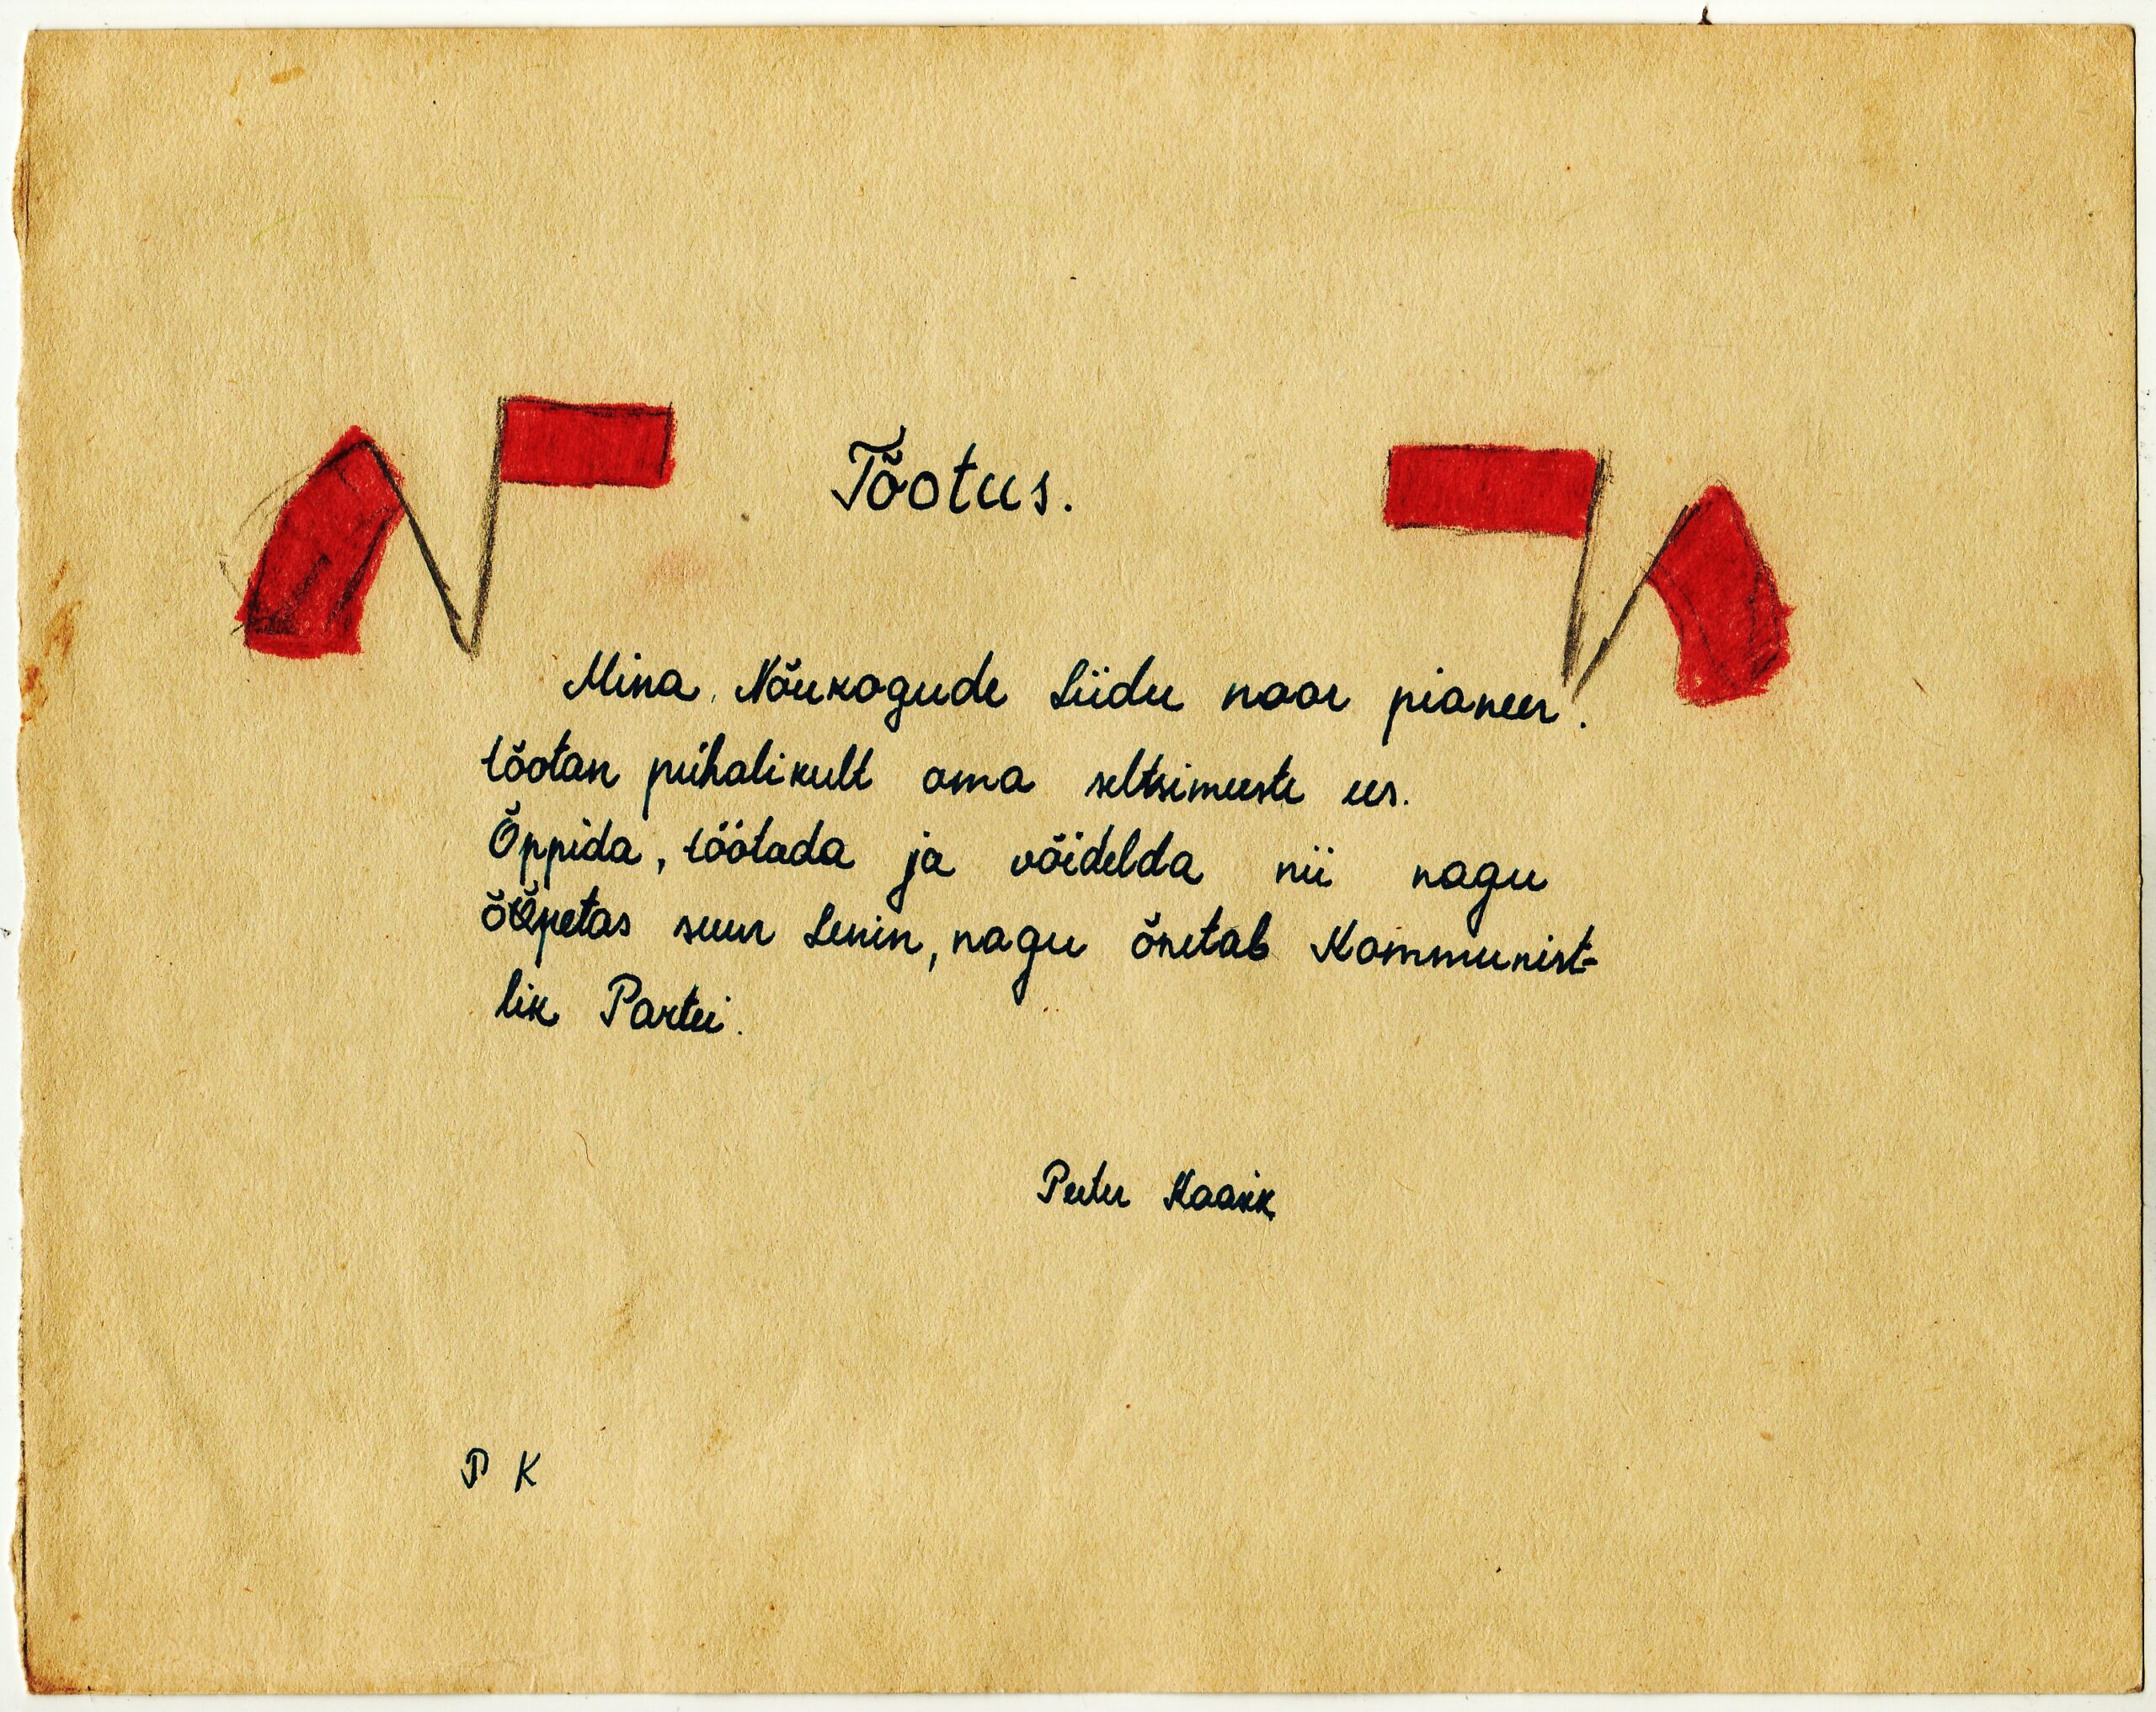 Tõotus.
Mina, Nõukogude Liidu noor pioneer.
tõotan pühalikult oma seltsimeeste ees.
Õppida, töötada ja võidelda nii nagu
õõpetas suur Lenin, nagu õpetab Kommunist-
lik Partei.
Peeter Kaasik
P K